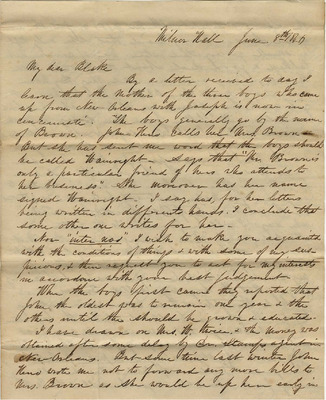 Milnor Hall June 8th 18
My dear Blake
By a letter received to day I
learn that the mother of the three boys who came
up from New Orleans with Joseph is now in
Cincinnati. The boys generally go by the name
of Brown. John Hens calls her Mrs Brown
But she has sent me word that the boys should
be called Wainright. Says that "Mr Brown is
only a particular friend of hers who attends to
her business". She moreover has her name
signed Wainright. I say has, for her letters
being written in different hands, I conclude that
some other one writes for her.
Now "inter nos" I wish to make you acquainted
with the condition of things & with some of my sus
picions, & then request you to act for my interests
in accordance with your best judgement.
When the boys first came they reported that
John the oldest was to remain one year & the
others until they should be grown & educated.
I have drawn on Mrs W. thrice, & the money was
obtained after some delay by agent in
New Orleans. But some time last winter John
Hens wrote me not to forward any more bills to
Mrs. Brown as she would be up here early in